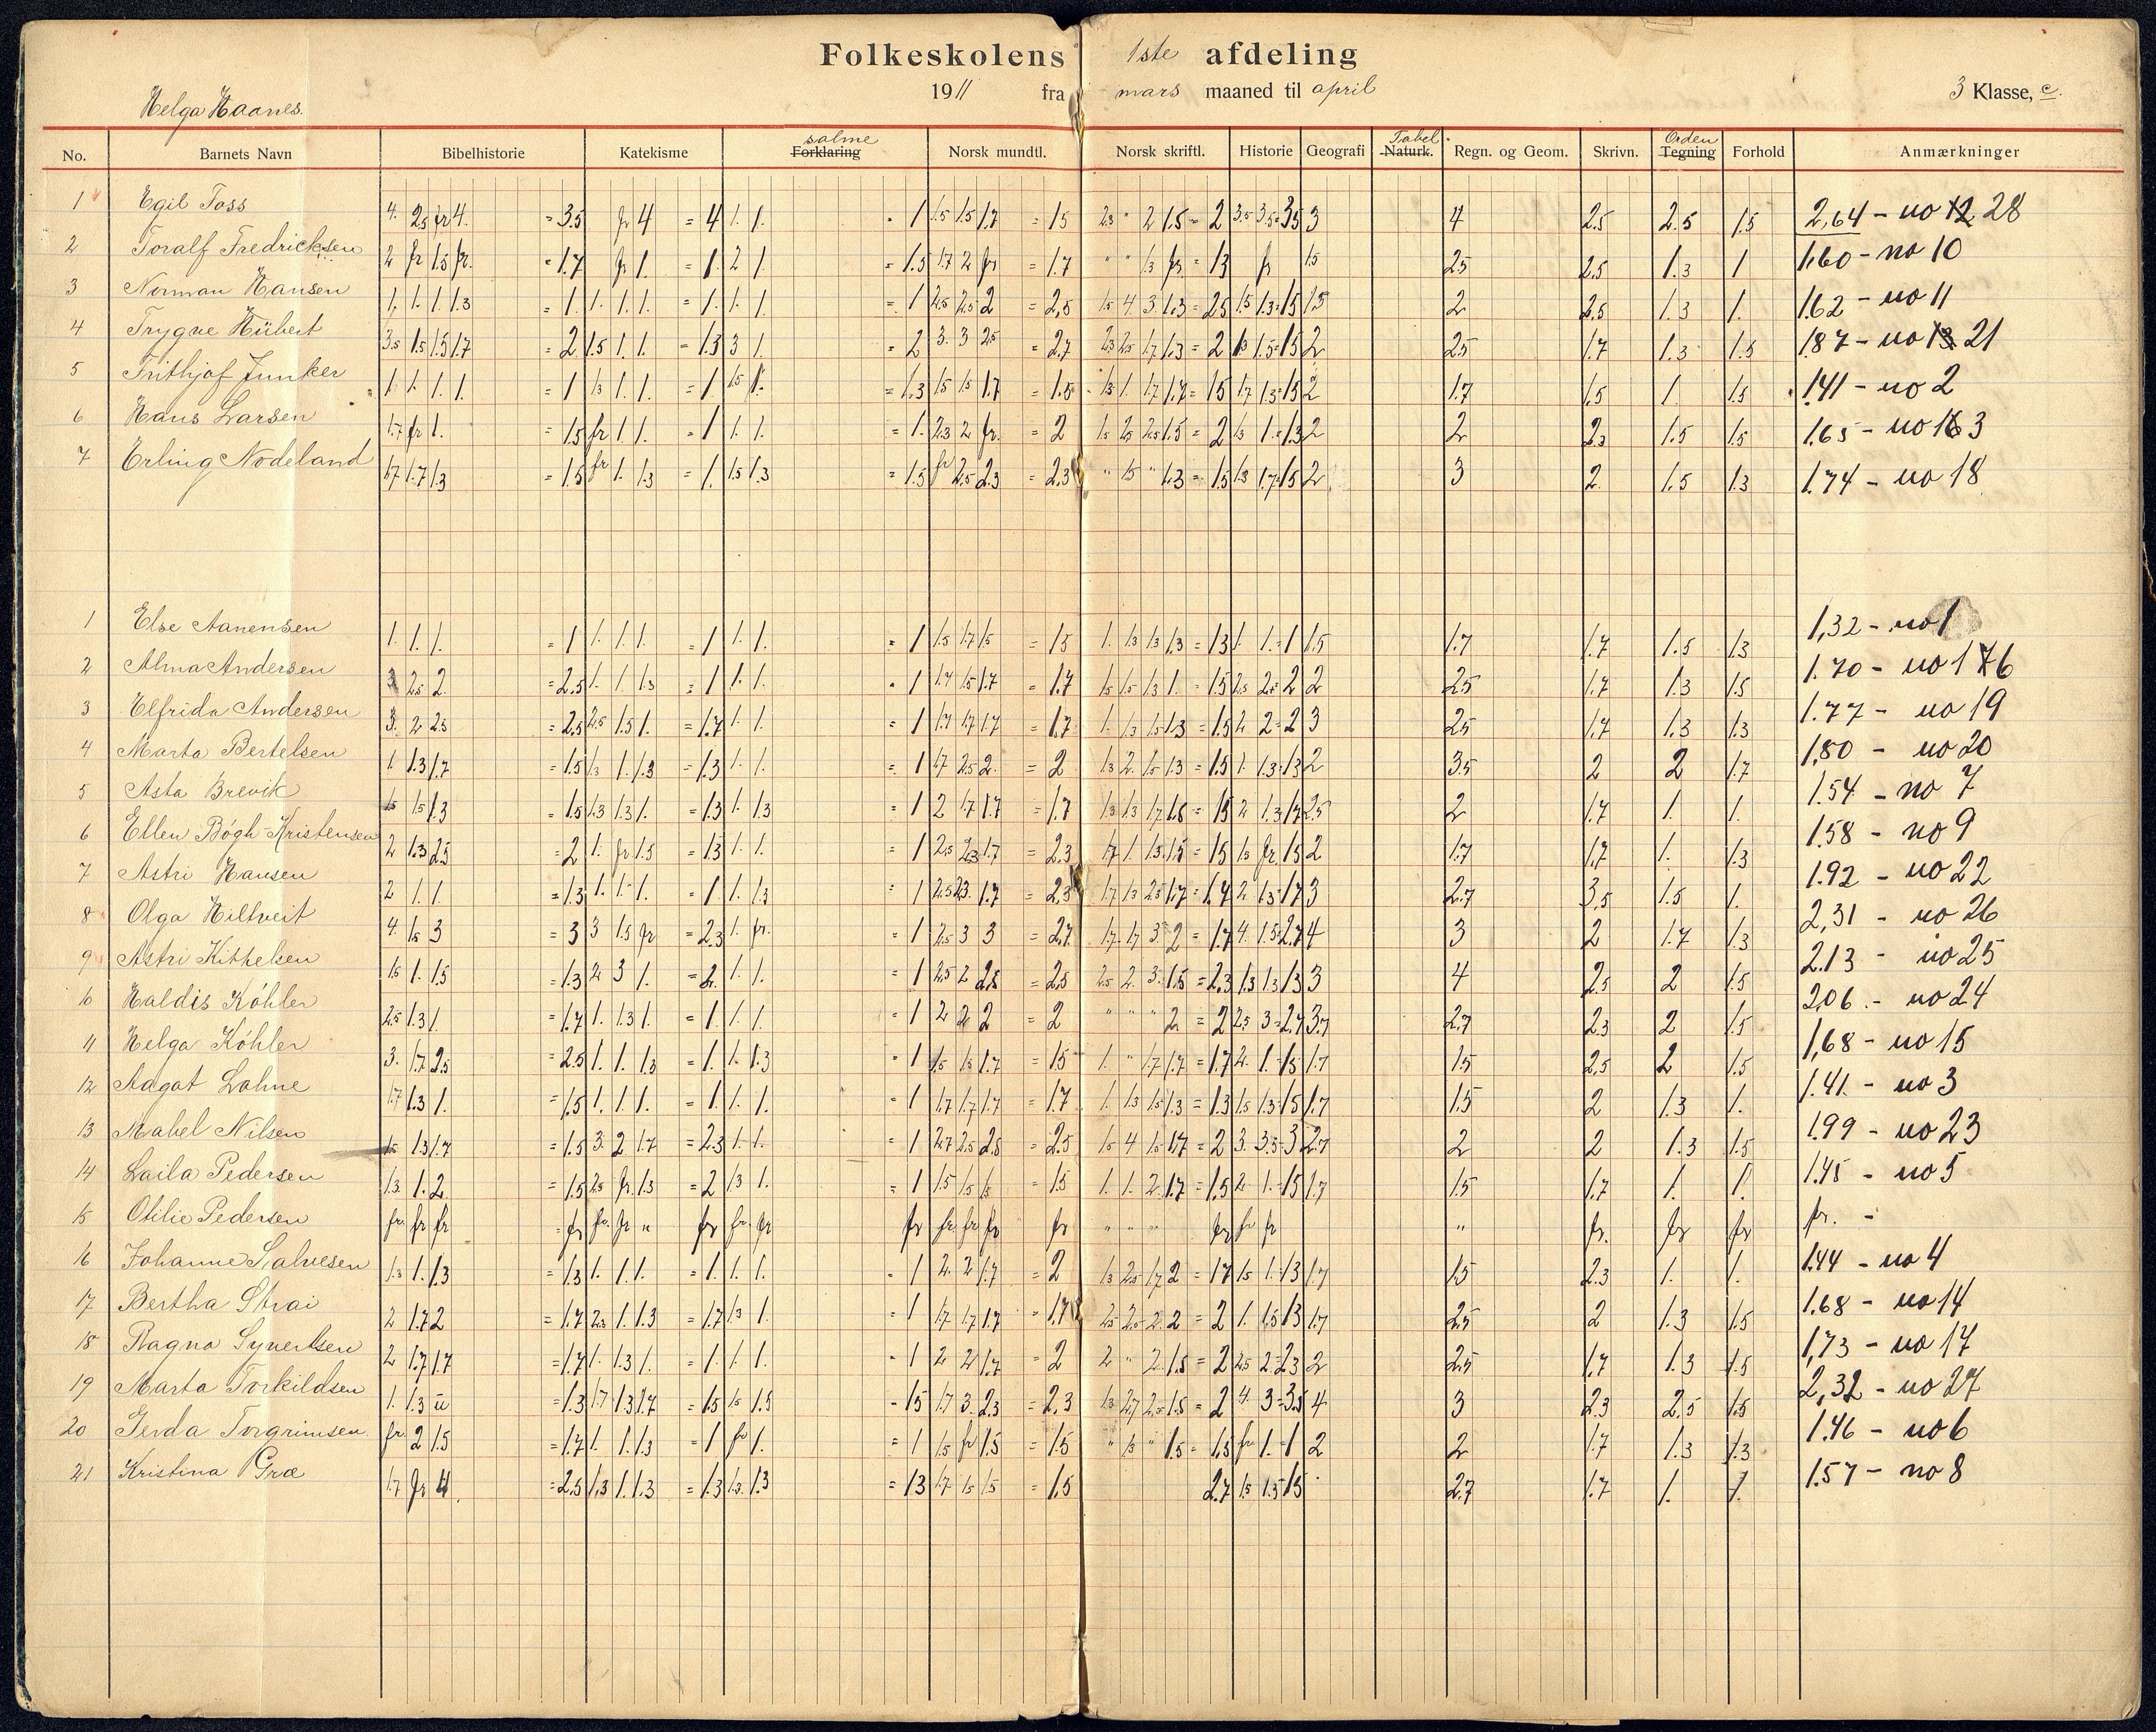 Folkeskolens 1ste afdeling
1911 fra mars maaned til april
3 Klasse, c.
Helga Haanes.
No. Barnets Navn Bibelhistorie Katekisme Forklaring salme Norsk mundtl. Norsk skriftl. Historie Geografi Naturk. Tabel. Regn. og Geom. Skrivn. Tegning Orden Forhold Anmærkninger
1 Egil Foss 4. 2.5 fr 4. = 3.5 fr 4 = 4 1. 1. = 1 1.5 1.5 1.7 = 1.5 2.3 " 2 1.5 = 2 3.5 3.5 = 3.5 3 4 2.5 2.5 1.5 2,64 - no 12 28
2 Toralf Fredricksen 2 fr 1.5 fr. = 1.7 fr 1. = 1. 2 1. = 1.5 1.7 2 fr = 1.7 " " 1.3 fr = 1.3 fr 1.5 2.5 2.5 1.3 1 1.60 - no 10
3 Norman Hansen 1. 1. 1. 1.3 = 1 1. 1. 1. = 1. 1. 1. = 1 2.5 2.5 2 = 2,5 1.5 4 3 1.3 = 2.5 1.5 1.3 = 1.5 1.5 2 2.5 1.3 1. 1.62 - no 11
4 Trygve Hübert 3.5 1.5 1.5 1.7 = 2 1.5 1. 1. = 1.3 3 1. = 2 3. 3 2.5 = 2.7 2.3 2.5 1.7 1.3 = 2 1.3 1.5 = 1.5 2 2.5 1.7 1.3 1.5 1.87 - no 13 21
5 Frithjof Junker 1. 1. 1. 1. = 1 1.3 1. 1. = 1. 1.5 1. = 1.3 1.5 1.5 1.7 = 1.5 1.3 1. 1.7 1.7 = 1.5 1.7 1.3 = 1.5 2 1.7 1.5 1. 1.5 1.41 - no 2
6 Hans Larsen 1.7 fr 1. = 1.5 fr 1. 1. = 1 1. 1. = 1. 2.3 2 fr. = 2 1.5 2.5 2.5 1.5 = 2 1.3 1. = 1.3 2 2 2.3 1.5 1.5 1.65 - no 163
7 Erling Nodeland 1.7 1.7 1.3 = 1.5 fr 1. 1.3 = 1. 1.5 1.3 = 1.5 fr 2.5 2.3 = 2.3 " 1.5 " 1.3 = 1.5 1.3 1.7 = 1.5 2 3 2. 1.5 1.3 1.74 - no 18
1 Else Aanensen 1. 1. 1. = 1 1. 1. 1. = 1 1. 1. = 1 1.5 1.7 1.5 = 1.5 1. 1.3 1.3 1.3 = 1.3 1. 1. = 1 1.5 1.7 1.7 1.5 1.3 1,32 - no 1
2 Alma Andersen 3 2.5 2. = 2.5 1. 1. 1.3 = 1 1. 1. = 1 1.7 1.5 1.7 = 1.7 1.5 1.5 1.3 1. = 1.5 2.5 2 = 2 2 2.5 1.7 1.3 1.5 1.70 - no 176
3 Elfrida Andersen 3. 2 2.5 = 2.5 2.5 1.5 1. = 1.7 1. 1. = 1 1.7 1.7 1.7 = 1.7 1. 1.3 1.5 1.3 = 1.5 2 2 = 2 3 2.5 1.7 1.3 1.3 1.77 - no 19
4 Marta Bertelsen 1. 1.3 1.7 = 1.5 1.3 1. 1.3 = 1.3 1. 1. = 1 1.7 2.5 2. = 2 1.3 2. 1.5 1.3 = 1.5 1. 1.3 = 1.3 2 3.5 2 2 1.7 1,80 - no 20
5 Asta Brevik 1.5 1.5 1.3 = 1.5 1.3 1.3 1. = 1.3 1. 1.3 = 1 2 1.7 1.7 = 1.7 1.3 1.3 1.7 1.5 = 1.5 2 1.3 = 1.7 2.5 2 1.7 1. 1. 1.54 - no 7
6 Ellen Bögh-Kristensen 2 1.3 2.5 = 2 1. fr 1.5 = 1.3 1. 1. = 1 2.5 2.3 1.7 = 2.3 1.7 1. 1.5 1.5 = 1.5 1.5 fr. 1.5 2 1.7 1.7 1. 1.3 1.58 - no 9
7 Astri Hansen 2 1. 1. = 1.3 1. 1. 1. = 1 1. 1.3 = 1 2.5 2.3. 1.7 = 2.3 1.7 1.3 2.5 1.7 = 1.7 2 1.3 = 1.7 3 2.7 3.5 1.5 1. 1.92 - no 22
8 Olga Hiltveit 4. 1.5 3 = 3 3 1.5 fr = 2.3 1. fr. = 1 2.5 3 3 = 2.7. 1.7 1.7 3 2 = 1.7 4. 1.5 = 2.7 4 3 2 1.7 1.3 2,31 - no 26
9 Astri Kittelsen 1.5 1. 1.5 = 1.3 2 3 1. = 2. 1. 1. = 1 2.5 2 2.5 = 2.5 2.5 2. 3. 1.5 = 2.3 1.3 1.3 1.3 3 4 2.5 2 1.5 2.13 - no 25
10 Haldis Köhler 2.5 1.3 1. = 1.7 1. 1.3 1. = 1. 1. 1. = 1 2 2 2 = 2 " " " 2 = 2 2.5 3 = 2.7 3.7 2.7 2.3 2 1.5 2.06 - no 24
11 Helga Köhler 3. 1.7 2.5 = 2.5 1. 1. 1.3 = 1. 1. 1.3 = 1 1.5 1.3 1.7 = 1.5 1. " 1.7 1.7 = 1.7 2. 1. = 1.5 1.7 1.5 2.5 2 1.5 1,68 - no 15
12 Aagot Lohne 1.7 1.3 1. = 1.5 1. 1. 1. = 1. 1. 1. = 1 1.7 1.7 1.7 = 1.7 1. 1.3 1.5 1.3 = 1.3 1.5 1.3 = 1.5 1.7 1.5 2 1.3 1. 1.41 - no 3
13 Mabel Nilsen 1.5 1.3 1.7 = 1.5 3. 2 1.7 = 2.3 1. 1. = 1 2.7 2.5 2.5 = 2.5 1.5 4 1.5 1.7 = 2 3. 3.3 = 3 2.7 2 2 1.3 1.5 1.99 - no 23
14 Laila Pedersen 1.3 1. 2 = 1.5 2.5 fr. 1.3 = 2 1.3 1. = 1 1.5 1.5 1.5 = 1.5 1. 1. 2 1.7 = 1.5 2. 1. = 1.5 1.7 1.5 1.7 1. 1. 1.45 - no 5
15 Otilie Pedersen fr. fr fr = fr fr. fr " fr fr. fr fr fr. fr fr fr " " " fr fr fr " fr. fr fr fr. -
16 Johanne Salvesen 1.3 1. 1.3 = 1.3 1. 1. 1. = 1. 1. 1. = 1 2. 2 1.7 = 2 1.3 2.5 1.7 2 = 1.7 1.5 1. = 1.3 1.7 1.5 2.3 1. 1. 1.44 - no 4
17 Bertha Strai 2 1.7 2 = 1.7 2.3 1. 1.3 = 1.7 1.3 1. = 1 1.7 1.7 1.7 = 1.7 2.5 2.5 2. 2 = 2 1. 1.5 1.3 1.7 2.5 2 1.3 1.5 1.68 - no 14
18 Ragna Syvertsen 2 1.7 1.7 = 1.7 1. 1.3 1. = 1. 1. 1. = 1 2 2 1.7 = 2 2 " 2. 1.5 = 2 2.5 2 = 2.3 2 2.5 1.7 1.3 1.5 1,73 - no 17
19 Marta Torkildsen 1. 1.3 u = 1.3 1.7 1.3 1.7 = 1.5 1.5 1.5 = 1.5 1.7 3 2.3 = 2.3 1.3 2.7 2.5 1.5 = 2 4. 3 = 3.5 4 3 2.3 2.5 1.5 2,32 - no 27
20 Gerda Torgrimsen fr. 2 1.5 = 1.7 1. 1. 1.3 = 1 fr 1. = 1 1.5 fr 1.5 = 1.5 " 1.3 " 1.5 = 1.5 fr 1. = 1 2 2 1.7 1.3 1.3 1.46 - no 6
21 Kristina Gra 1.7 fr 4. = 2.5 1.3 1. 1.3 = 1.3 1.3. 1.3 = 1.3 1.7 1.5 1.5 = 1.5 2.7 1.5 1.5 1.5 2.7 1.7 1. 1. 1.57 - no 8